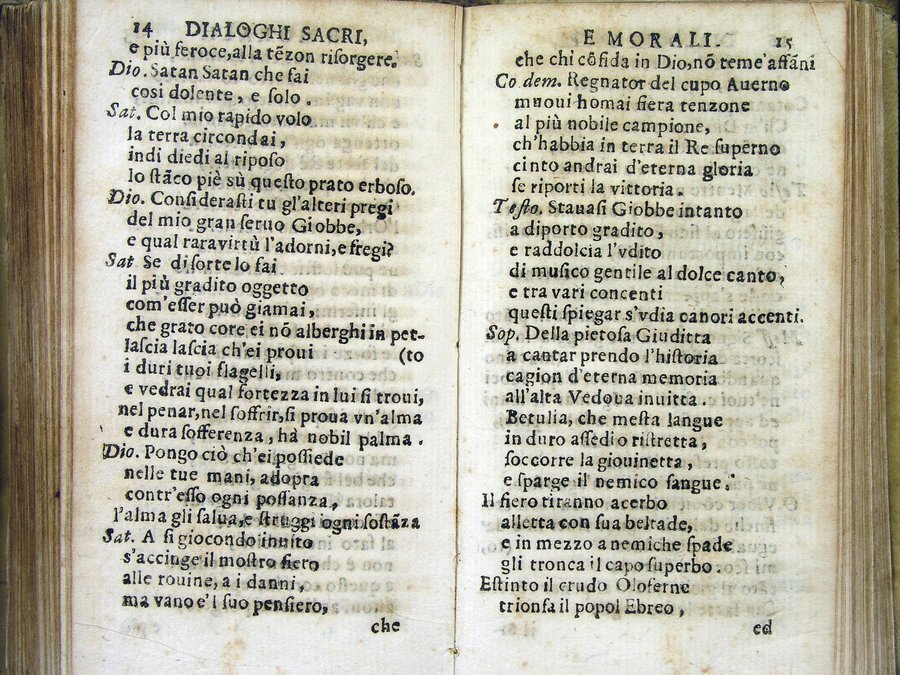 14 DIALOGHI SACRI,
e più feroce,alla tẽzon riſorgere.
Dio. Satan Satan che fai
cosi dolente, e ſolo.
Sat. Col mio rapido volo
la terra circondai,
indi diedi al ripoſo
lo ſtãco piè sù queſto prato erboſo.
Dio. Conſideraſti tu gl'alteri pregi
del mio gran ſeruo Giobbe,
e qual rara virtù l'adorni,e fregi?
Sat. Se di ſorte lo fai
il più gradito oggetto
com'eſſer può giamai,
che grato core ei nõ alberghi in pet-
laſcia laſcia ch'ei proui (to
i duri tuoi flagelli,
e vedrai qual fortezza in lui ſi troui,
nel penar,nel ſoffrir,ſi proua vn'alma
e dura ſofferenza, hà nobil palma.
Dio. Pongo ciò ch'ei poſſiede
nelle tue mani, adopra
contr'eſſo ogni poſſanza,
l'alma gli ſalua,e ſtruggi ogni ſoſtãza
Sat. A ſi giocondo inuito
s'accinge il moſtro fiero
alle rouine, a i danni,
ma vano e'l ſuo penſiero,
che
E MORALI. 15
che chi cõfida in Dio,nõ teme'affãni
Co dem. Regnator del cupo Auerno
muoui homai fiera tenzone
al più nobile campione,
ch'habbia in terra il Re ſuperno
cinto andrai d'eterna gloria
ſe riporti la vittoria.
Teſto. Stauaſi Giobbe intanto
a diporto gradito,
e raddolcia l'vdito
di muſico gentile al dolce canto,
e tra vari concenti
queſti ſpiegar s'vdia canori accenti.
Sop. Della pietoſa Giuditta
a cantar prendo l'hiſtoria
cagion d'eterna memoria
all'alta Vedoua inuitta.
Betulia, che meſta langue
in duro aſſedio riſtretta,
ſoccorre la giouinetta,
e ſparge il nemico ſangue.
Il fiero tiranno acerbo
alletta con ſua beltade,
e in mezzo a nemiche ſpade
gli tronca il capo ſuperbo.
Eſtinto il crudo Oloferne
trionfa il popol Ebreo,
ed